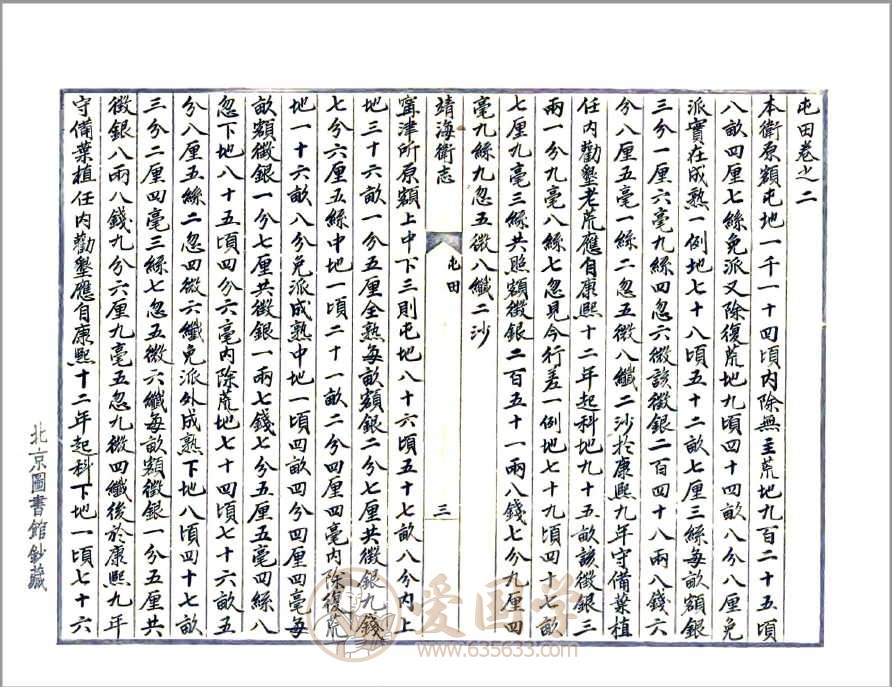 屯田卷之二
本衛原額屯地一千一十四頃內除無主荒地九百二十五頃
八畝四厘七絲免派又除復荒地九頃四十四畝八分八厘免
派實在成熟一例地七十八頃五十二畝七厘三絲每畝額銀
三分一厘六毫九絲四忽六微該徵銀二百四十八兩八錢六
分八厘五毫一絲二忽五微八纖二沙於康熙九年守備葉植
任內勸墾老荒應自康熙十二年起科地九十五畝該徵銀三
兩一分九毫八絲七忽見今行差一例地七十九頃四十七畝
七厘九毫三絲共照額徵銀二百五十一兩八錢七分九厘四
毫九絲九忽五微八纖二沙
靖海衛志
屯田
三
甯津所原額上中下三則屯地八十六頃五十七畝八分內上
地三十六畝一分五厘全熟每畝額銀二分七厘共徵銀九錢
七分六厘五絲中地一頃二十一畝二分四厘四毫內除復荒
地一十六畝八分免派成熟中地一頃四畝四分四厘四毫每
畝額徵銀一分七厘共徵銀一兩七錢七分五厘五毫四絲八
忽下地八十五頃四分六毫內除荒地七十四頃七十六畝五
分八厘五絲二忽四微六纖免派外成熟下地八頃四十七畝
三分二厘四毫三絲七忽五微六纖每畝額徵銀一分五厘共
徵銀八兩八錢九分六厘九毫五忽九微四纖後於康熙九年
守備葉植任內勸墾應自康熙十二年起科下地一頃七十六
北京圖書館鈔藏
爱国学
www.635633.com